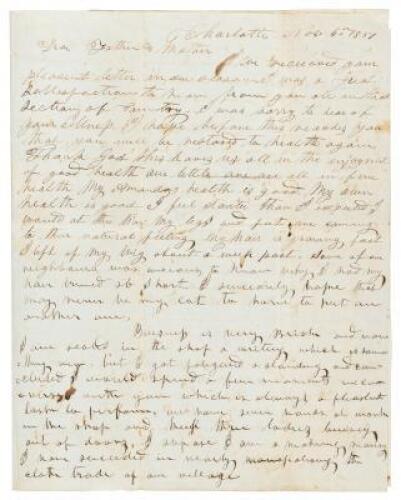 Charlotte Nov 6th 1851
Dear Father & Mother
I've received your
pleasent letter in due season it was a real
Satisfaction to hear from you all in that
Section of Country. I was sorry to hear of
your illness I hope before this reaches you
that you will be restored to health again
Thank God this leaves us all in the enjoyment
of good health our little are all in fine
health My health is good My own
health is good I feel better than I expected I
would at this time My legs and feet are coming
to their natural feeling My hair is growing fast
I left of my wig about a week past. Some of our
neighbours was anxious to know why I had my
hair so short I sincerely hope that
may never be my lot to have to put on
another one.
Buisness is very Brisk and now
I am seated in the shop a writing which is some
thing new. but I got fatigued a standing and con
cluded I would spend a few moments in con
versing with you which is always a pleasent
task to perform, we have seven hands at work
in the shop and keep three ladies buisey
out of doors. I
I have succeeded in nearly monopolising the
cloth trade of our village